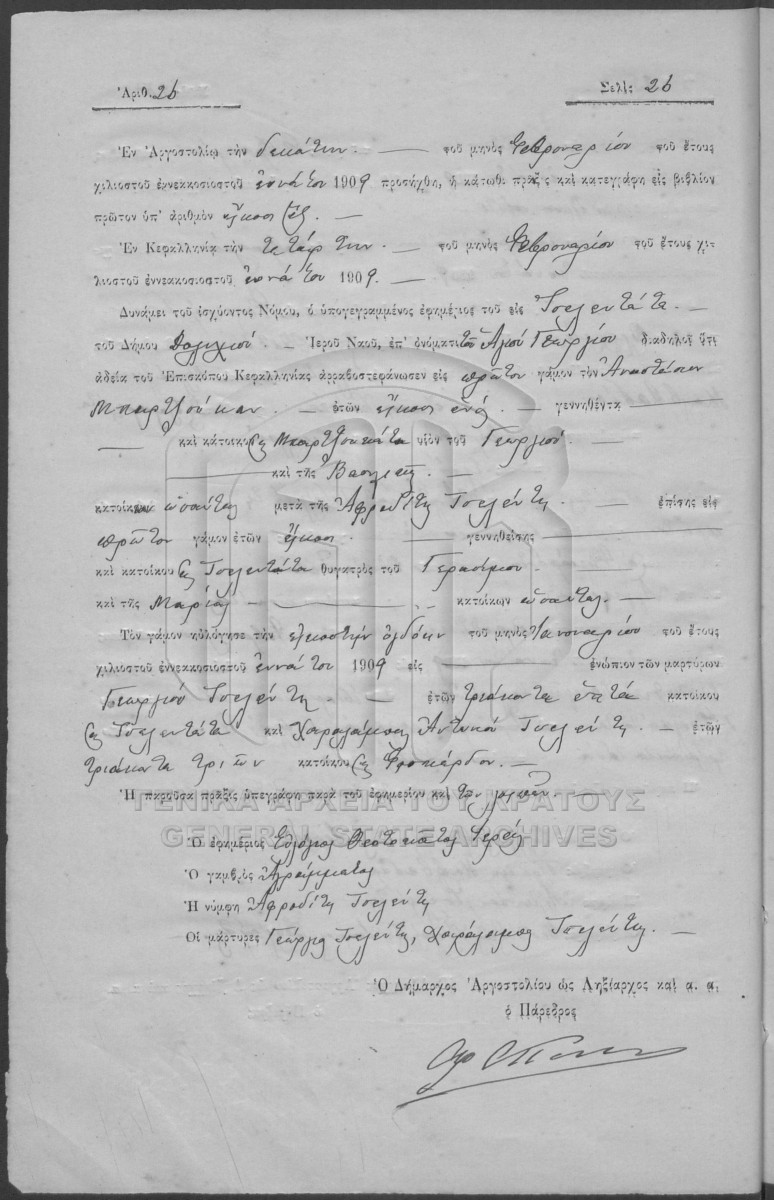 Ἀριθ. 26 Σελὶς 26
Ἐν Ἀργοστολίῳ τὴν δεκάτην — τοῦ μηνὸς Φεβρουαρίου τοῦ ἔτους
χιλιοστοῦ ἐννεακοσιοστοῦ ἐννάτου 1909 προσήχθη, ἡ κάτωθι πρᾶξις καὶ κατεγράφη εἰς βιβλίον
πρῶτον ὑπ' ἀριθμὸν εἴκοσι ἕξ. —
Ἐν Κεφαλληνίᾳ τὴν τετάρτην — τοῦ μηνὸς Φεβρουαρίου τοῦ ἔτους χι-
λιοστοῦ ἐννεακοσιοστοῦ ἐννάτου 1909. —
Δυνάμει τοῦ ἰσχύοντος Νόμου, ὁ ὑπογεγραμμένος ἐφημέριος τοῦ εἰς Τσελεντάτα —
τοῦ Δήμου Δολιχίου. — Ἱεροῦ Ναοῦ, ἐπ' ὀνόματι τοῦ Ἁγίου Γεωργίου διαδηλοῖ ὅτι
ἀδείᾳ τοῦ Ἐπισκόπου Κεφαλληνίας ἀρραβοστεφάνωσεν εἰς πρῶτον γάμον τὸν Ἀναστάσιον
Μπαρτζούκαν. — ἐτῶν εἴκοσι ἑνός. — γεννηθέντα —
— καὶ κάτοικον εἰς Μπαρτζουκάτα υἱὸν τοῦ Γεωργίου. —
— καὶ τῆς Βασιλικῆς. —
κατοίκων ὡσαύτως μετὰ τῆς Ἀφροδίτης Τσελέντη. — ἐπίσης εἰς
πρῶτον γάμον ἐτῶν εἴκοσι. — γεννηθείσης —
καὶ κατοίκου εἰς Τσελεντάτα θυγατρὸς τοῦ Γερασίμου —
καὶ τῆς Μαρίας — κατοίκων ὡσαύτως. —
Τὸν γάμον ηὐλόγησε τὴν εἰκοστὴν ὀγδόην τοῦ μηνὸς Ἰανουαρίου τοῦ ἔτους
χιλιοστοῦ ἐννεακοσιοστοῦ ἐννάτου 1909 εἰς — ἐνώπιον τῶν μαρτύρων
Γεωργίου Τσελέντη. — ἐτῶν τριάκοντα ἑπτά κατοίκου
εἰς Τσελεντάτα καὶ Χαραλάμπους Ἀντωνίου Τσελέντη. — ἐτῶν
τριάκοντα τριῶν κατοίκου εἰς Φισκάρδον. —
Ἡ παροῦσα πρᾶξις ὑπεγράφη παρὰ τοῦ ἐφημερίου καὶ τῶν λοιπῶν. —
ΓΕΝΙΚΑ ΑΡΧΕΙΑ ΤΟΥ ΚΡΑΤΟΥΣ
GENERAL STATE ARCHIVES
Ὁ ἐφημέριος Εὐλόγιος Θεοτοκάτος Ἱερεύς
Ὁ γαμβρὸς Ἀγράμματος
Ἡ νύμφη Ἀφροδίτη Τσελέντη
Οἱ μάρτυρες Γεώργιος Τσελέντης, Χαράλαμπος Τσελέντης. —
Ὁ Δήμαρχος Ἀργοστολίου ὡς Ληξίαρχος καὶ α. α.
ὁ Πάρεδρος